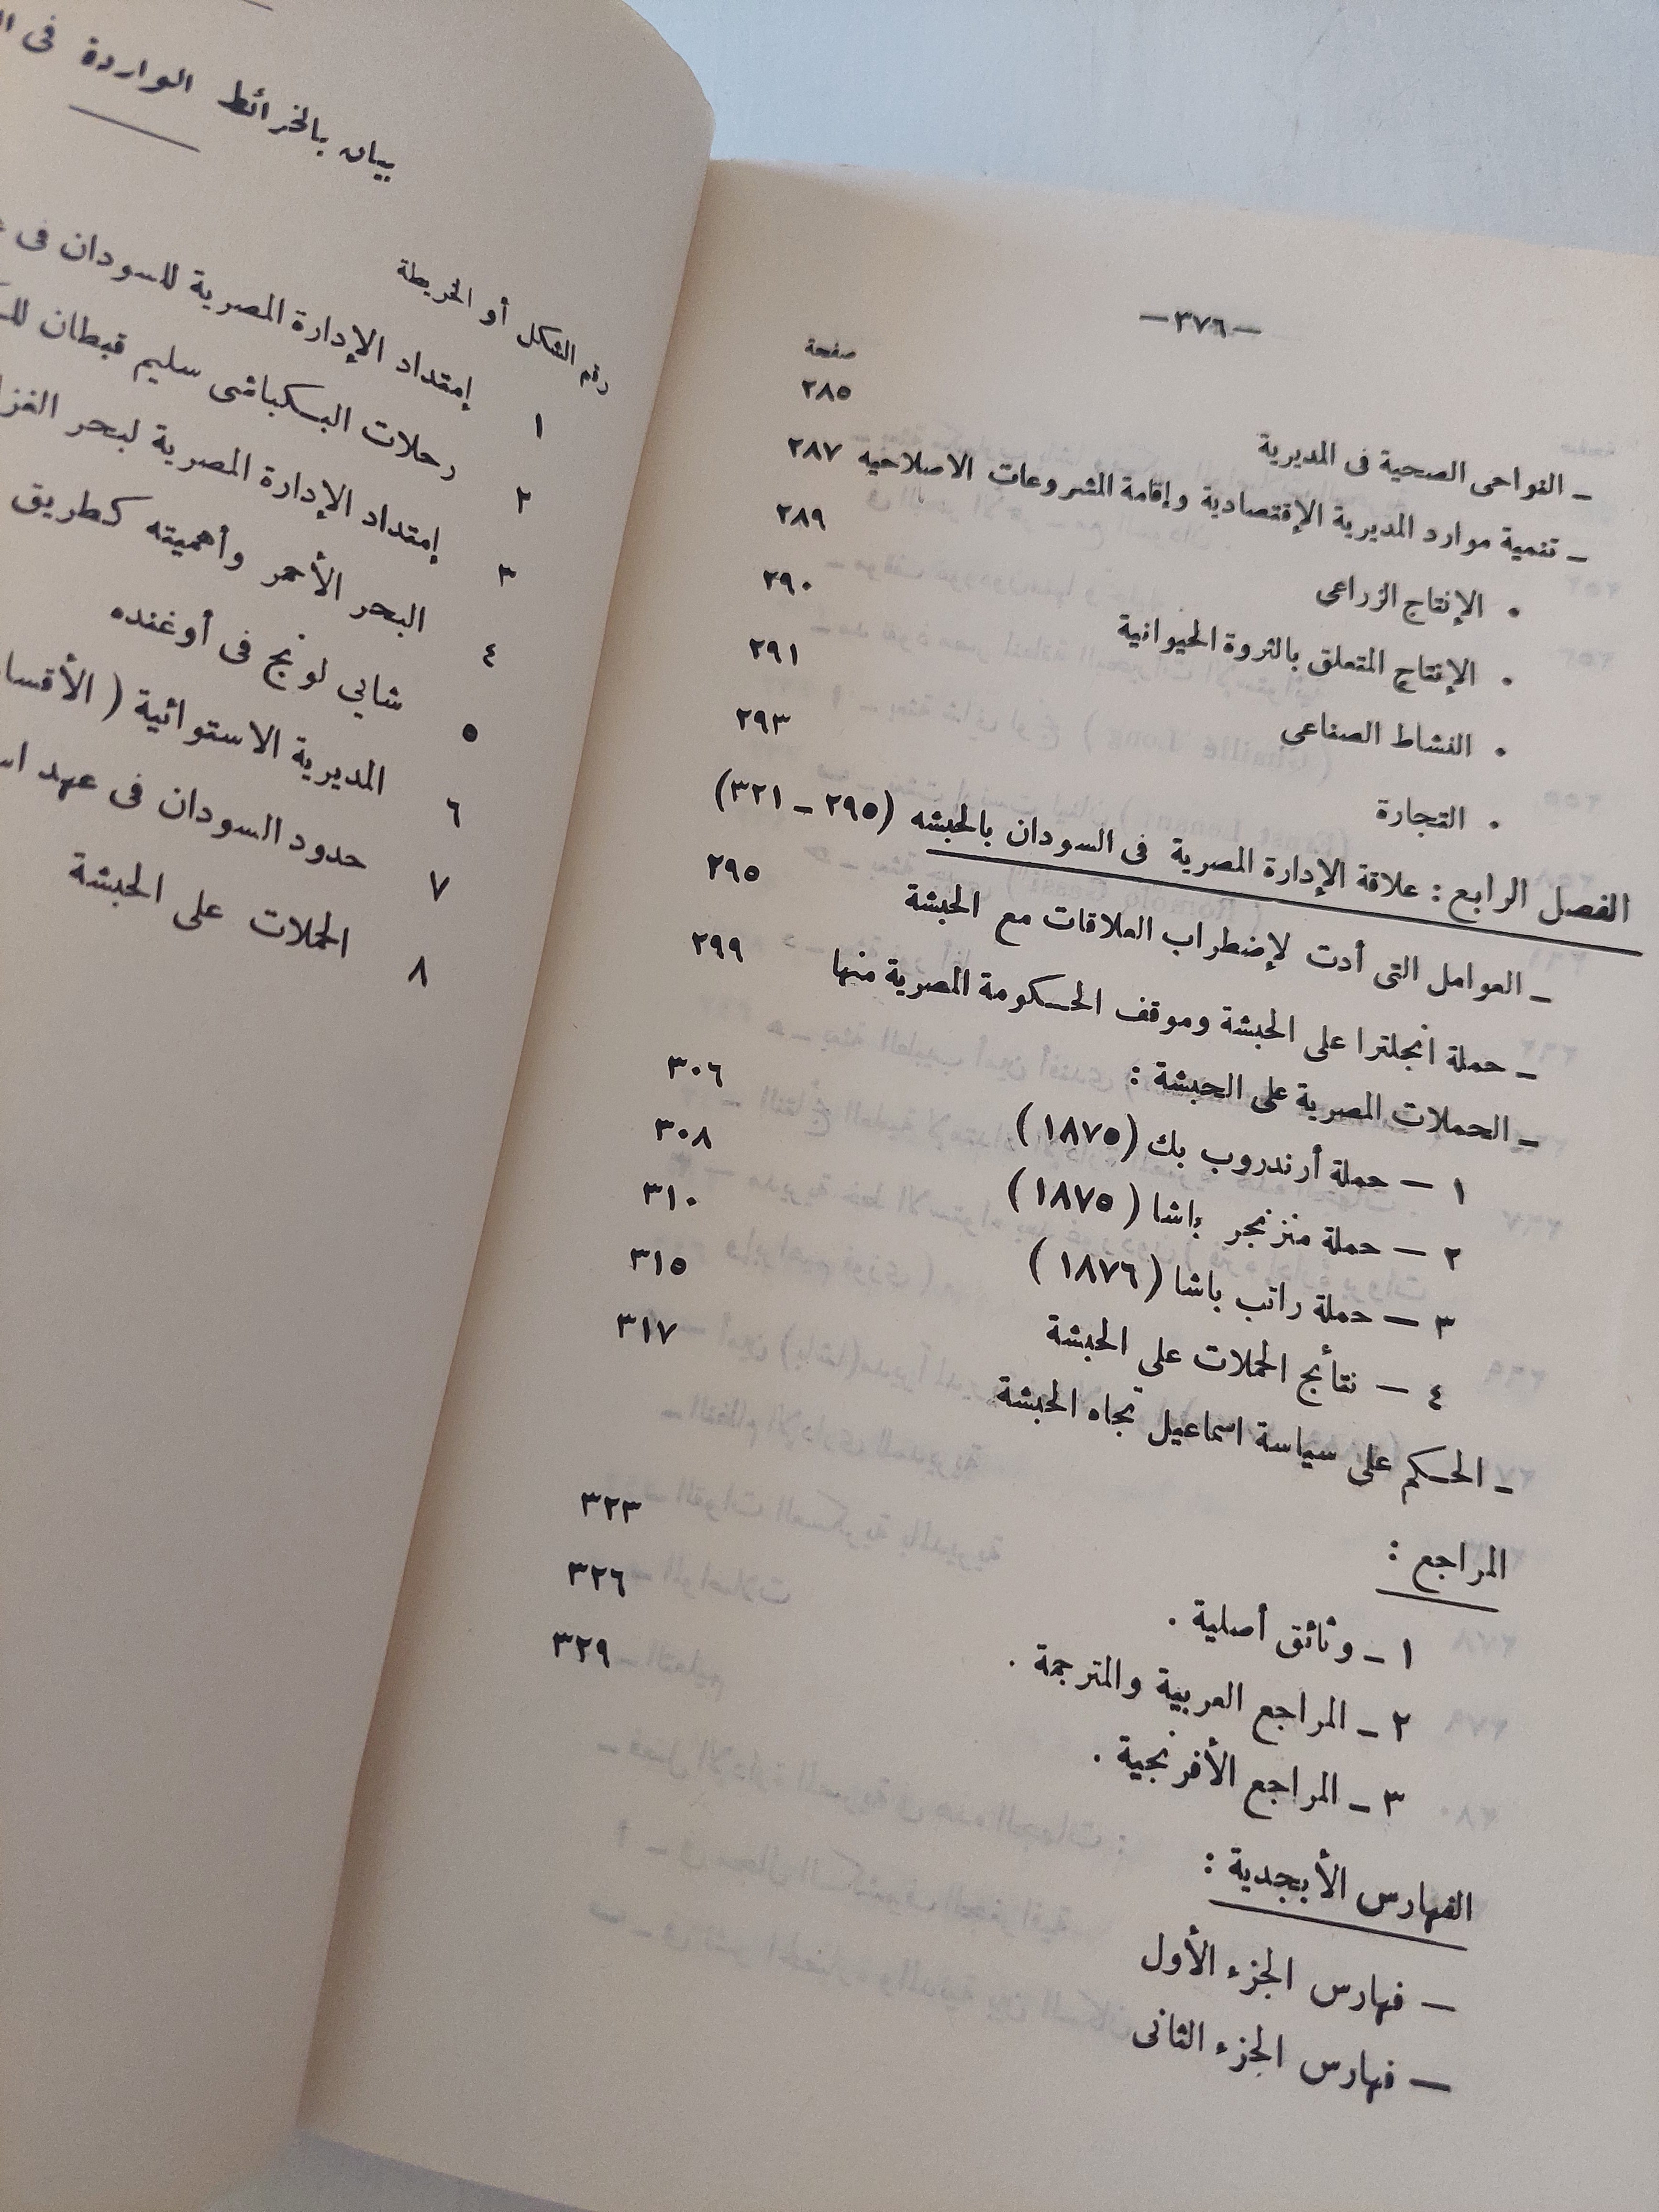 —٣٧٦—
صفحة
– النواحى الصحية فى المديرية ٢٨٥
– تنمية موارد المديرية الإقتصادية وإقامة المشروعات الاصلاحيه ٢٨٧
• الإنتاج الزراعى ٢٨٩
• الإنتاج المتعلق بالثروة الحيوانية ٢٩٠
• النشاط الصناعى ٢٩١
• التجارة ٢٩٣
الفصل الرابع : علاقة الإدارة المصرية فى السودان بالحبشه (٢٩٥ – ٣٢١)
– العوامل التى أدت لإضطراب العلاقات مع الحبشة ٢٩٥
– حملة انجلترا على الحبشة وموقف الحكومة المصرية منها ٢٩٩
– الحملات المصرية على الحبشة :
١ — حملة أرندروب بك (١٨٧٥) ٣٠٦
٢ — حملة منزنجر باشا (١٨٧٥) ٣٠٨
٣ — حملة راتب باشا (١٨٧٦) ٣١٠
٤ — نتائج الحملات على الحبشة ٣١٥
– الحكم على سياسة اسماعيل تجاه الحبشة ٣١٧
المراجع :
١ – وثائق أصلية . ٣٢٣
٢ – المراجع العربية والمترجمة . ٣٢٦
٣ – المراجع الأفرنجية . ٣٢٩
الفهارس الأبجدية :
— فهارس الجزء الأول
— فهارس الجزء الثانى
بيان بالخرائط الواردة فى
رقم الشكل أو الخريطة
١ إمتداد الإدارة المصرية للسودان فى
٢ رحلات البكباشى سليم قبطان
٣ إمتداد الإدارة المصرية لبحر
٤ البحر الأحمر وأهميته كطريق
٥ شايي لونج فى أوغنده
٦ المديرية الاستوائية (
٧ حدود السودان فى عهد
٨ الحملات على الحبشة